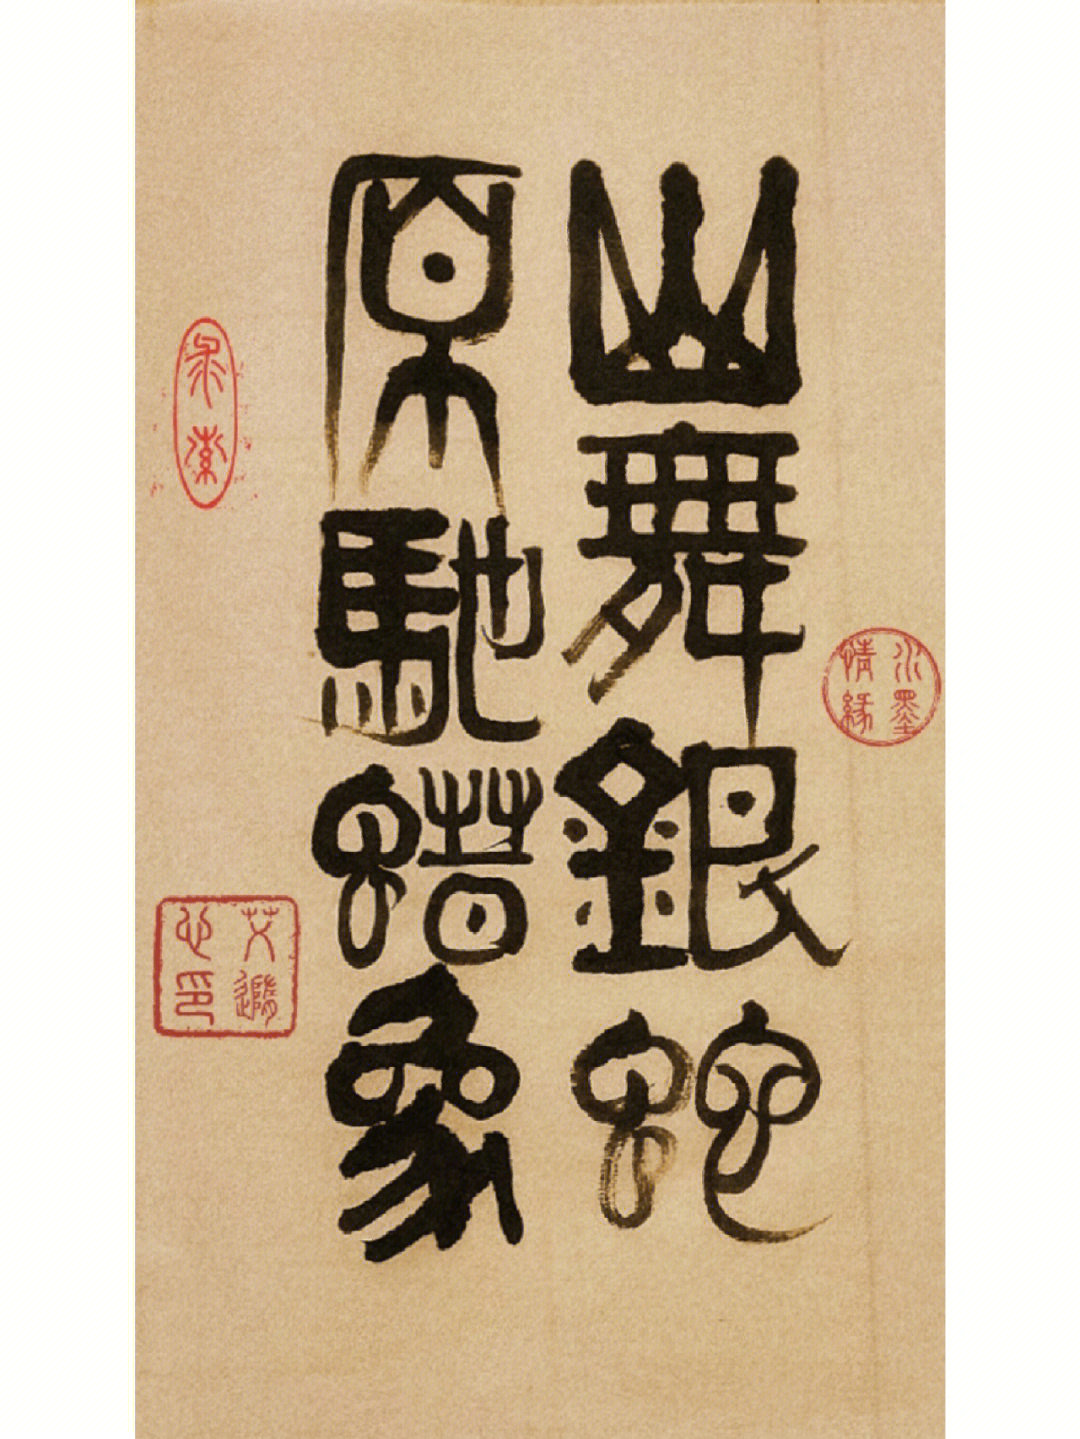 山舞銀蛇
原馳蜡象
水墨
情緣